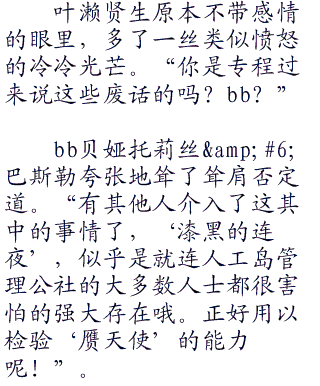 叶濑贤生原本不带感情
的眼里，多了一丝类似愤怒
的冷冷光芒。“你是专程过
来说这些废话的吗？bb？”
bb贝娅托莉丝&amp; #6;
巴斯勒夸张地耸了耸肩否定
道。“有其他人介入了这其
中的事情了，‘漆黑的连
夜’，似乎是就连人工岛管
理公社的大多数人士都很害
怕的强大存在哦。正好用以
检验‘赝天使’的能力
呢！”。